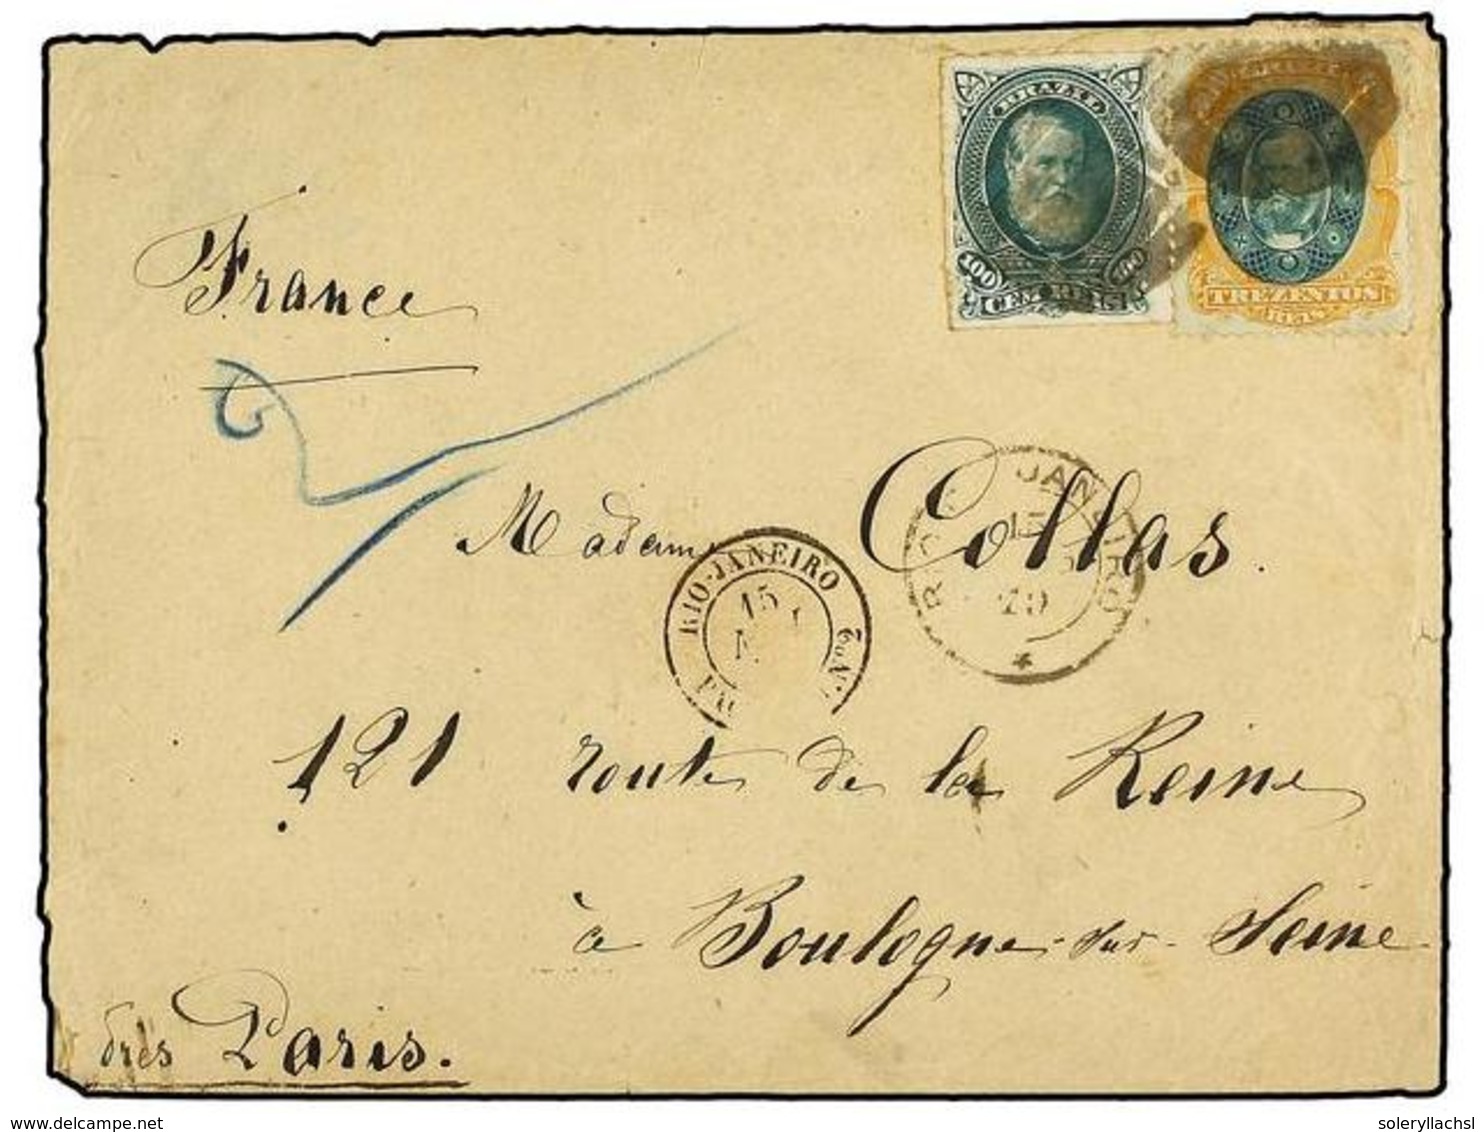 BRAZIL
100 100
CEM REIS
TREZENTOS
REIS
France
Madame Collas.
RIO-JANEIRO
15
JANEIRO
121 route de la Reine
à Boulogne-sur-Seine
près Paris.
www.delcampe.net
soleryllachsl